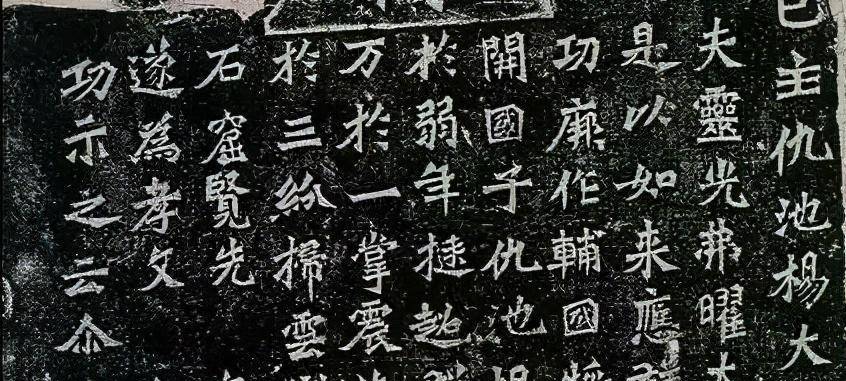 主仇池楊大
夫靈光弗曜大
是以如来應
功厥作輔國
開國子仇池楊
於弱年挺超
万於一掌震
於三紛掃雲
石窟覽先
遂為孝文
功示之云尒